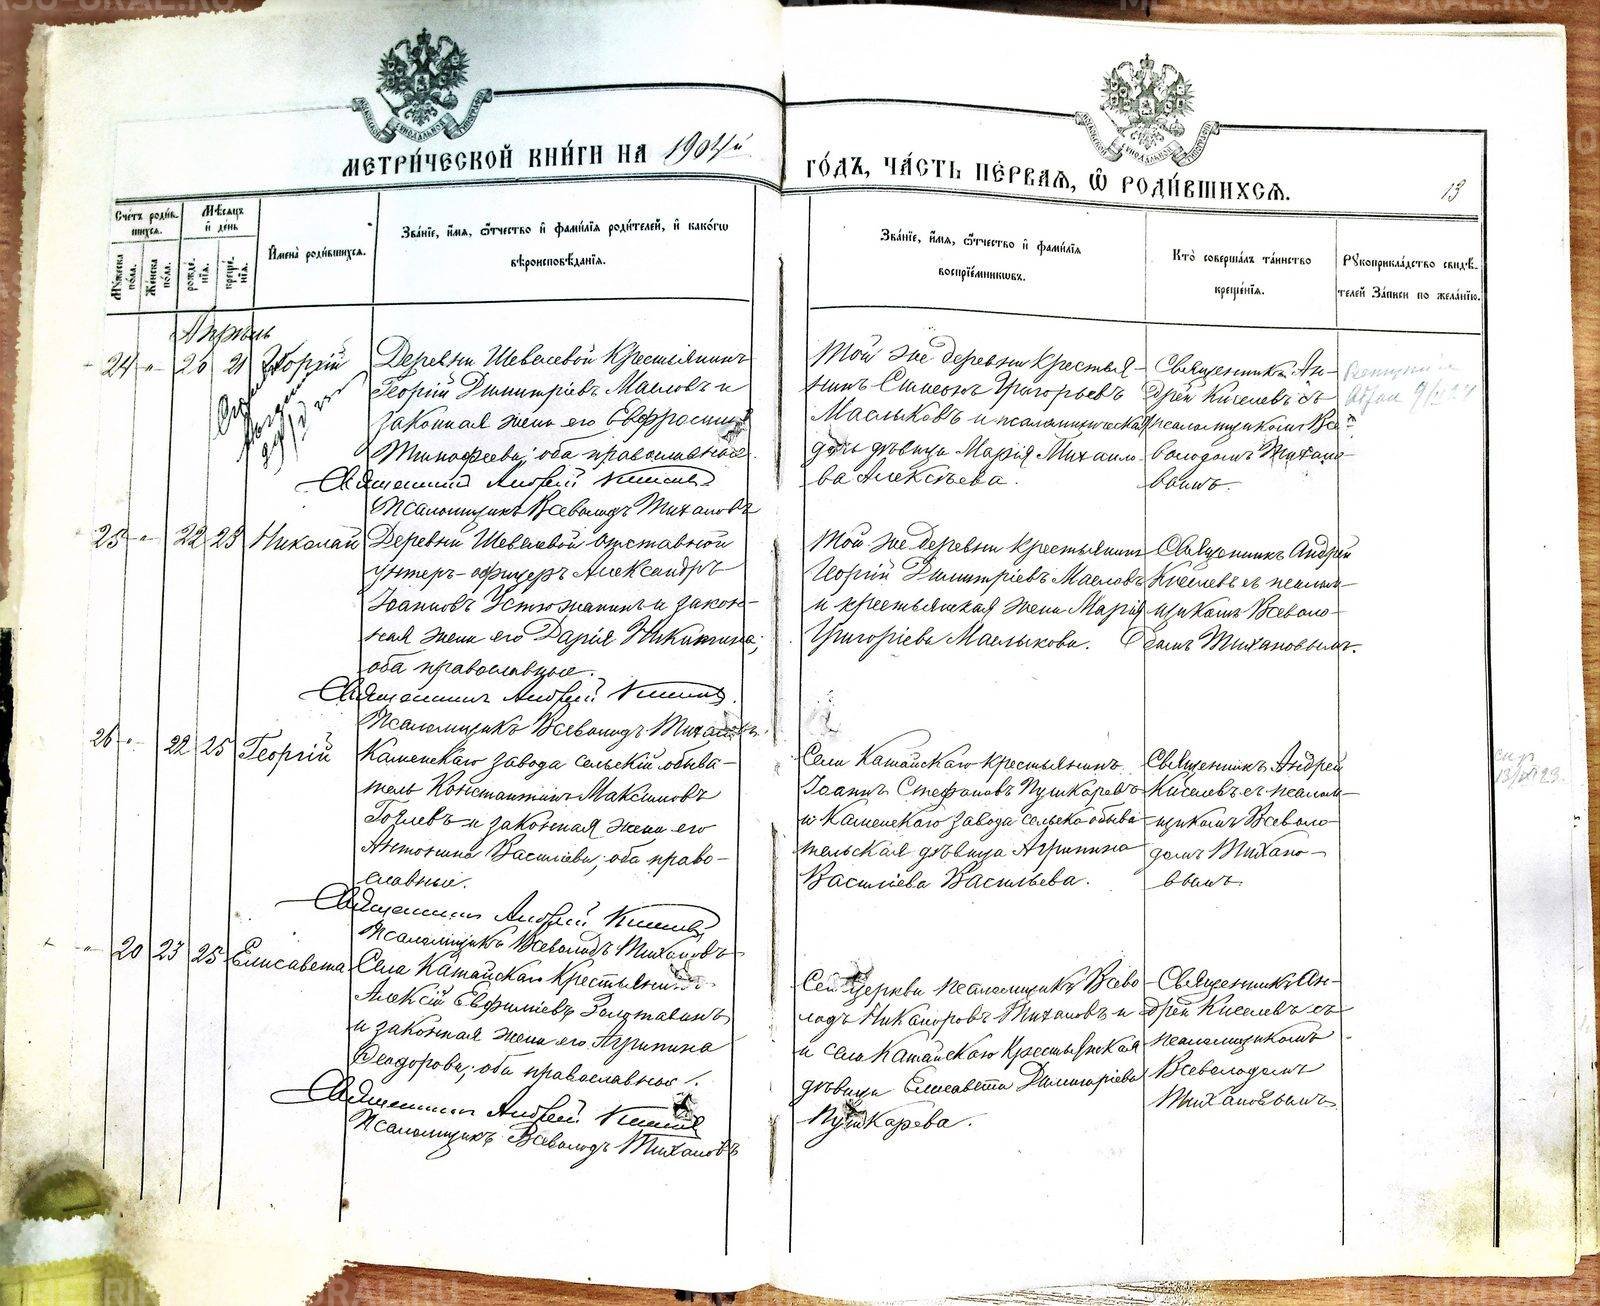 МЕТРИ́ЧЕСКОЙ КНИ́ГИ НА 1904й ГО́ДЪ, ЧА́СТЬ ПЕ́РВАѦ, Ѡ҆ РОДИ́ВШИХСѦ.
13
Сче́тъ роди́в-
шихсѧ.
Мѣ́сѧцъ
и҆ де́нь
Мꙋ́жеска по́ла.
Же́нска по́ла.
рожде́-
нїѧ.
креще́-
нїѧ.
И҆мена̀ роди́вшихсѧ.
Зва́нїе, и҆́мѧ, ѻ҆́тчество и҆ фами́лїѧ роди́телей, и҆ како́гѡ
вѣроисповѣ́данїѧ.
Зва́нїе, и҆́мѧ, ѻ҆́тчество и҆ фами́лїѧ
воспрїе́мникѡвъ.
Кто̀ соверша́лъ та́инство
креще́нїѧ.
Рꙋкоприкла́дство свидѣ́-
телей за́писи по жела́нїю.
Апрѣль
24 " 20 21 Георгій
Деревни Шевелевой крестьянинъ
Георгій Димитріевъ Масловъ и
законная жена его Евфросинія
Тимофеева; оба православные.
Священникъ Андрей Киселевъ
Псаломщикъ Всеволодъ Тихановъ
Той же деревни крестья-
нинъ Симеонъ Григорьевъ
Маслыковъ и псаломщическая
дочь дѣвица Марія Михаило-
ва Алексѣева.
Священникъ Ан-
дрей Киселевъ съ
псаломщикомъ Все-
володомъ Тихано-
вымъ.
25 " 22 23 Николай
Деревни Шевелевой отставной
унтеръ-офицеръ Александръ
Іоанновъ Устюжанинъ и закон-
ная жена его Дарія Никитина;
оба православные.
Священникъ Андрей Киселевъ.
Псаломщикъ Всеволодъ Тихановъ.
Той же деревни крестьянинъ
Георгій Димитріевъ Масловъ
и крестьянская жена Марія
Григоріева Маслыкова.
Священникъ Андрей
Киселевъ съ псалом-
щикомъ Всеволо-
домъ Тихановымъ.
26 " 22 25 Георгій
Каменскаго завода сельскій обыва-
тель Константинъ Максимовъ
Гоглевъ и законная жена его
Антонина Василіева; оба право-
славные.
Священникъ Андрей Киселевъ
Псаломщикъ Всеволодъ Тихановъ
Села Катайскаго крестьянинъ
Іоаннъ Стефановъ Пушкаревъ
и Каменскаго завода сельско обыва-
тельская дѣвица Агрипина
Василіева Васильева.
Священникъ Андрей
Киселевъ съ псалом-
щикомъ Всеволо-
домъ Тихано-
вымъ
" 20 23 25 Елисавета
Села Катайскаго Крестьянинъ
Алексій Евфиміевъ Золотавинъ
и законная жена его Агрипина
Ѳеодорова; оба православные.
Священникъ Андрей Киселевъ
Псаломщикъ Всеволодъ Тихановъ
Сей церкви псаломщикъ Всево-
лодъ Никаноровъ Тихановъ и
и села Катайскаго Крестьянская
дѣвица Елисавета Димитріева
Пушкарева.
Священникъ Ан-
дрей Киселевъ съ
псаломщикомъ
Всеволодомъ
Тихановымъ